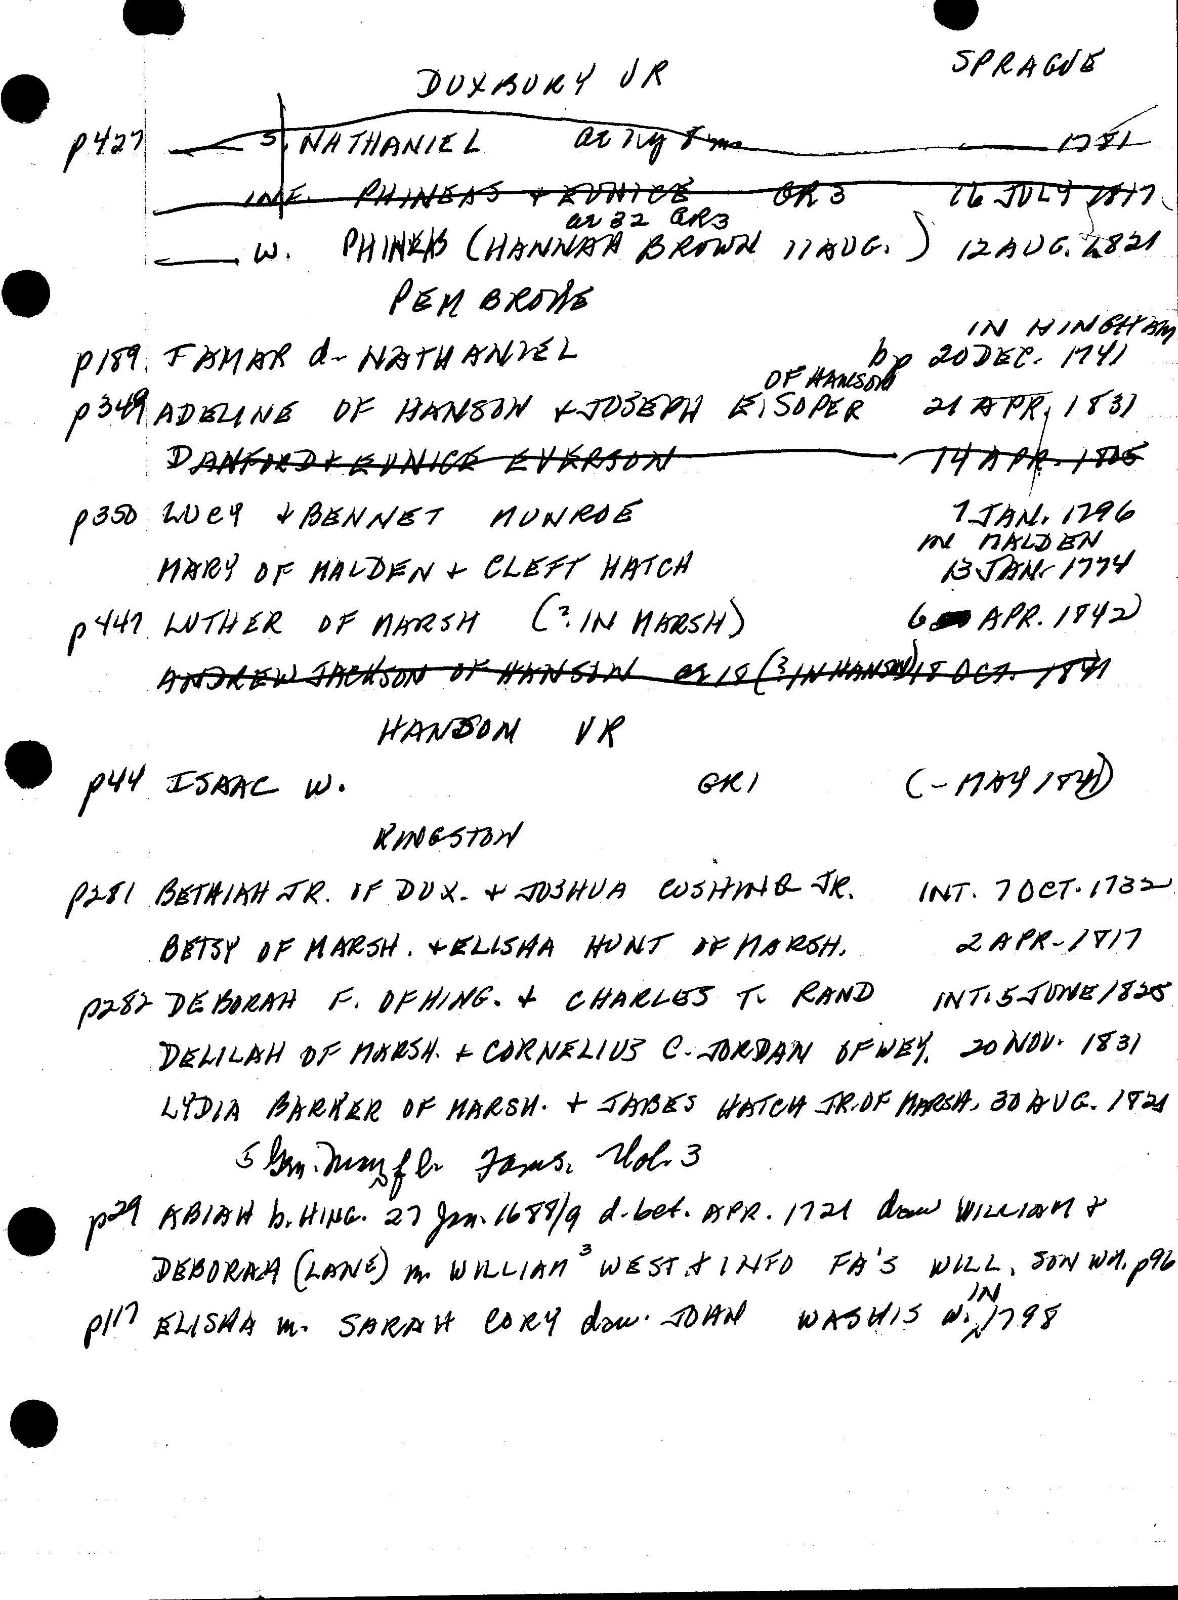 SPRAGUE
DUXBURY VR
p427 — S. NATHANIEL ae 7y 8m — 1781
INF. PHINEAS & EUNICE GR3 16 JULY 1817
ae 32 GR3
— W. PHINEAS (HANNAH BROWN 11 AUG.) 12 AUG. 1821
PEMBROKE
IN HINGHAM
p189 TAMAR d- NATHANIEL bp 20 DEC. 1741
OF HANSON
p349 ADELINE OF HANSON & JOSEPH E. SOPER 21 APR, 1831
DANFORD & EUNICE EVERSON 14 APR. 1805
p350 LUCY & BENNET MUNROE 7 JAN. 1796
IN MALDEN
MARY OF MALDEN & CLEFT HATCH 13 JAN. 1774
p447 LUTHER OF MARSH (? IN MARSH) 6 APR. 1842
ANDREW JACKSON OF HANSON ae 18 (? IN HANSON) 18 OCT. 1841
HANSOM VR
p44 ISAAC W. GR1 (- MAY 1841)
KINGSTON
p281 BETHIAH JR. OF DUX. & JOSHUA CUSHING JR. INT. 7 OCT. 1732
BETSY OF MARSH. & ELISHA HUNT OF MARSH. 2 APR- 1817
p282 DEBORAH F. OF HING. & CHARLES T. RAND INT. 5 JUNE 1825
DELILAH OF MARSH. & CORNELIUS C. JORDAN OF WEY. 20 NOV. 1831
LYDIA BARKER OF MARSH. & JABES HATCH JR. OF MARSH. 30 AUG. 1821
5 Gen. Mayfl. Fams. Vol. 3
p29 ABIAH b. HING. 27 Jan. 1688/9 d. bet. APR. 1721 dau WILLIAM &
DEBORAH (LANE) m. WILLIAM ³ WEST & INFO FA'S WILL, SON WM. p96
IN
p117 ELISHA m. SARAH CORY dau. JOHN WAS HIS W. 1798